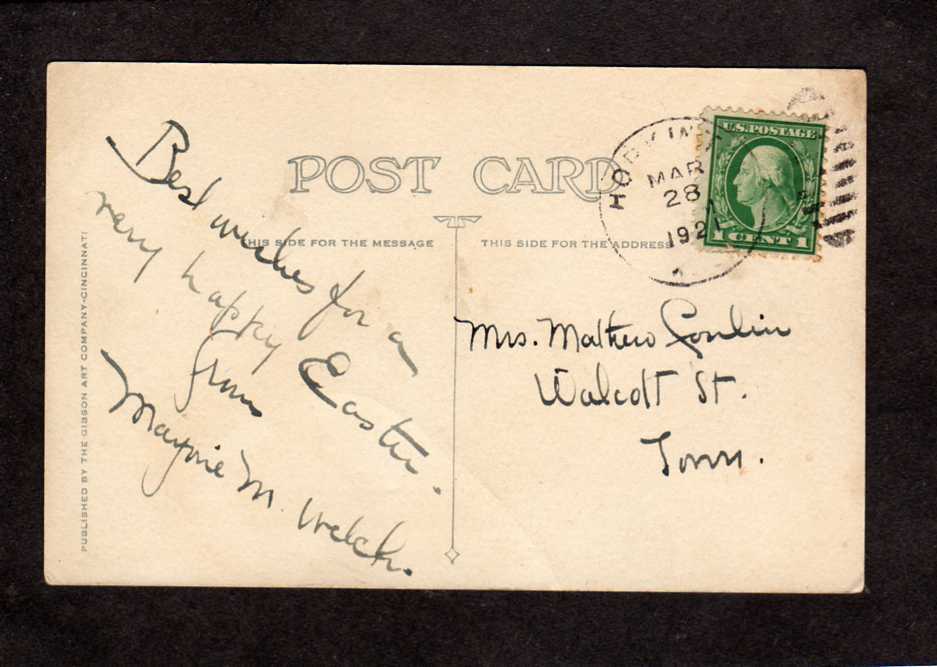 POST CARD
THIS SIDE FOR THE MESSAGE
THIS SIDE FOR THE ADDRESS
PUBLISHED BY THE GIBSON ART COMPANY-CINCINNATI
Best wishes for a
very happy Easter.
from
Marjorie M. Welch.
MAR
28
192
U.S. POSTAGE
1 CENT 1
Mrs. Mathew Conlin
Walcott St.
Town.